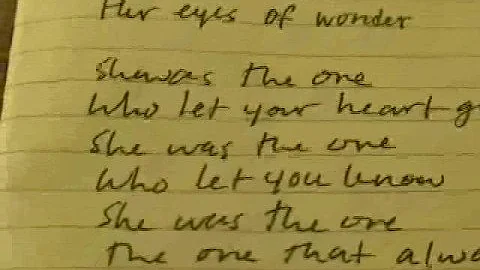 Her eyes of wonder
She was the one
Who let your heart g
She was the one
Who let you know
She was the one
the one that alwa